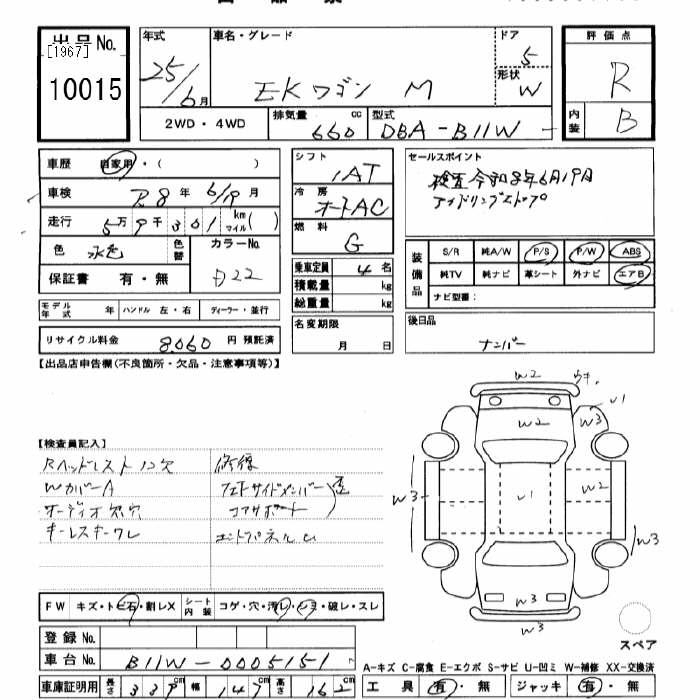 出品No.
[1967]
10015
年式 車名・グレード ドア
25/6月 EKワゴン M 5
形状
W
2WD・4WD 排気量 cc 型式
660 DBA-B11W
評価点
R
内装 B
車歴 自家用・( )
車検 R8年 6/19月
走行 5万9千301 km マイル( )
色 水色 色替 カラーNo.
保証書 有・無 D22
モデル年式 年 ハンドル 左・右 ディーラー・並行
リサイクル料金 8060 円 預託済
シフト
AT
冷房
オートAC
燃料
G
乗車定員 4 名
積載量 kg
総重量 kg
名変期限
月 日
セールスポイント
検査令和8年6月19日
アイドリングストップ
装備品 S/R 純A/W P/S P/W ABS
純TV 純ナビ 革シート 外ナビ エアB
ナビ型番：
後日品
ナンバー
【出品店申告欄(不良箇所・欠品・注意事項等)】
【検査員記入】
Rヘッドレスト 欠 修復
WカバーA フロントサイドメンバー
オーディオ欠穴 コアサポート
キーレスキーワレ エンドパネルU
W2
W2
W3
V1
W3
V1
W2
W3
W3
W3
スペア
FW キズ・トビ石・割レX シート内装 コゲ・穴・汚レ・シミ・破レ・スレ
登録No.
車台No. B11W-0005151
車庫証明用 長さ 339 cm 幅 147 cm 高さ 162 cm
A-キズ C-腐食 E-エクボ S-サビ U-凹ミ W-補修 XX-交換済
工具 有・無 ジャッキ 有・無